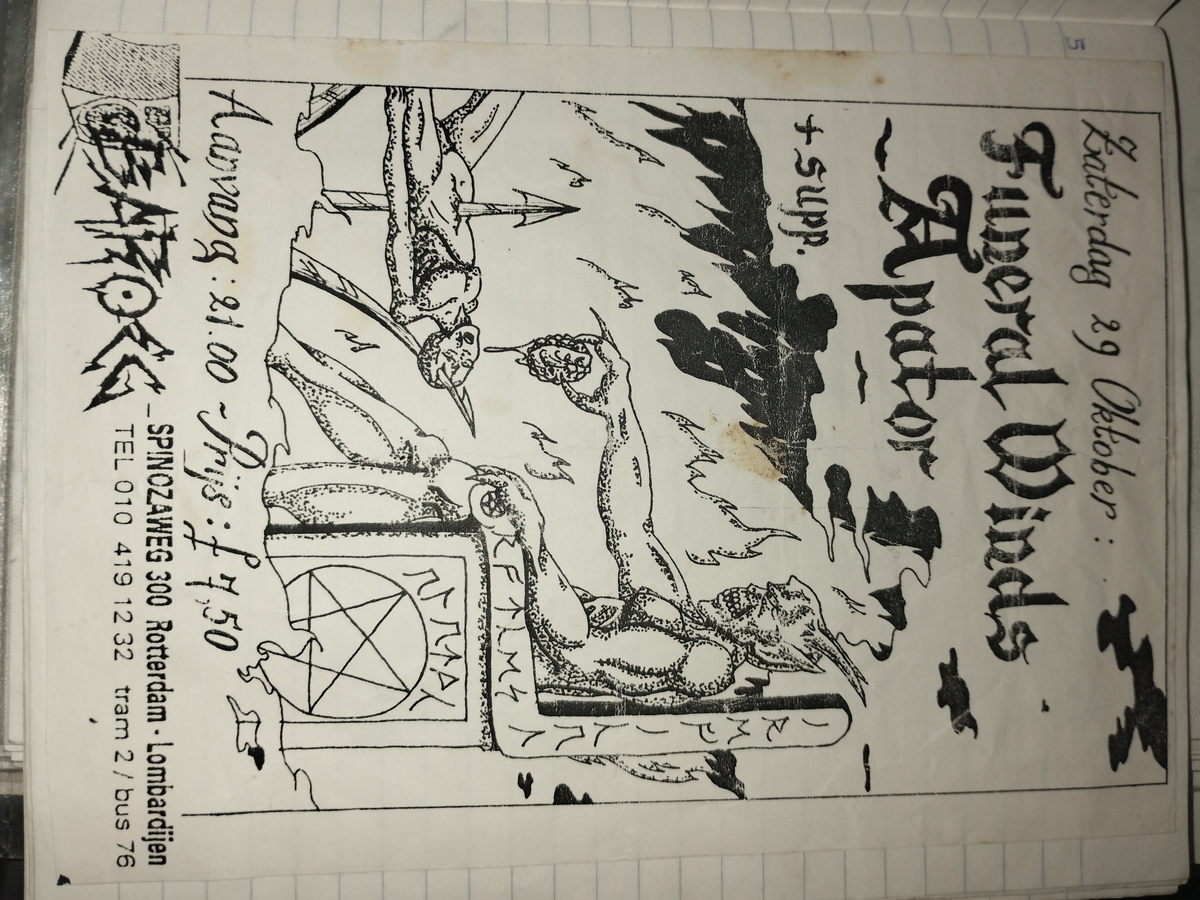 Zaterdag 29 Oktober :
Funeral Winds
~ Apator ~
+ supp.
Aanvang : 21.00 ~ Prijs : f 7,50
BAROEG
SPINOZAWEG 300 Rotterdam - Lombardijen
TEL 010 419 12 32 tram 2 / bus 76
5